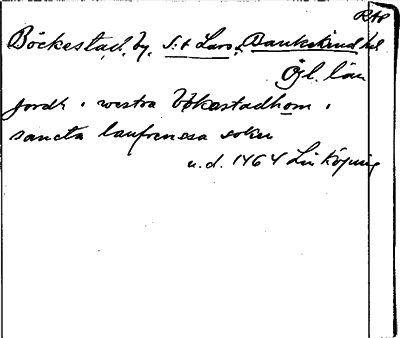 RAP
Böckestad, by, S:t Lars, Bankekind hd
Ögl. län
jordh i westra Bökestadhom i
sancta laufrenssa sokn
u.d. 1464 Linköping